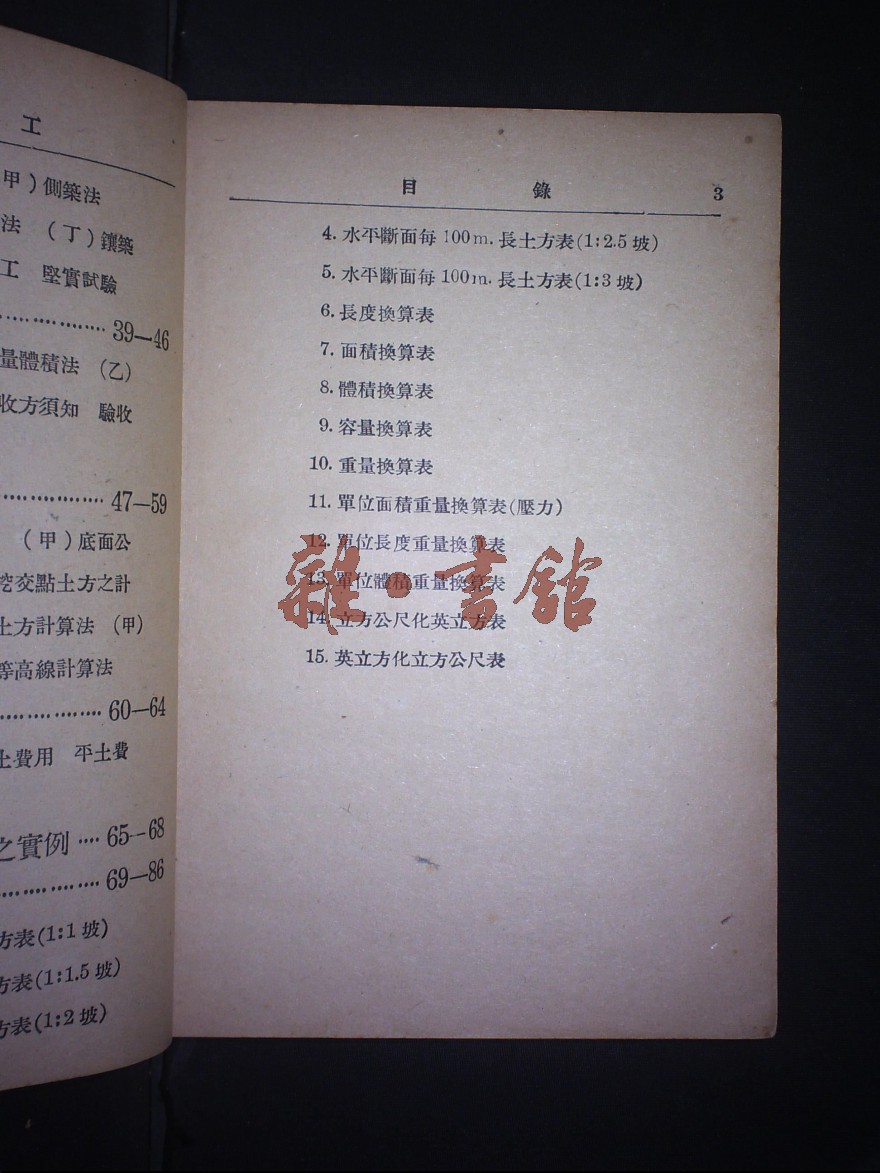 工
甲）側築法
法 （丁）鑲築
工 堅實試驗
39—46
量體積法 （乙）
收方須知 驗收
47—59
（甲）底面公
挖交點土方之計
土方計算法 （甲）
等高線計算法
60—64
土費用 平土費
之實例 65—68
69—86
方表(1:1坡)
方表(1:1.5坡)
方表(1:2坡)
目錄 3
4. 水平斷面每100m.長土方表(1:2.5坡)
5. 水平斷面每100m.長土方表(1:3坡)
6. 長度換算表
7. 面積換算表
8. 體積換算表
9. 容量換算表
10. 重量換算表
11. 單位面積重量換算表(壓力)
12. 單位長度重量換算表
13. 單位體積重量換算表
14. 立方公尺化英立方表
15. 英立方化立方公尺表
雜·書館